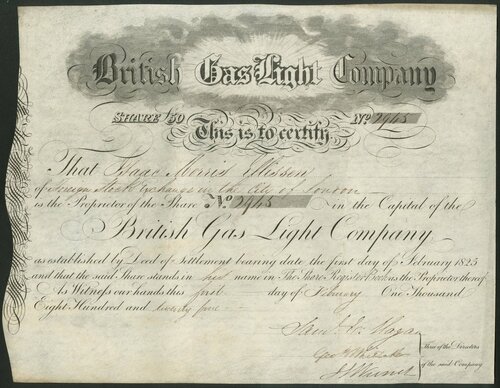 British Gas Light Company
SHARE £50 No 2945
This is to certify
That Isaac Morris Ellisson
of Foreign Stock Exchange in the City of London
is the Proprietor of the Share No 2945 in the Capital of the
British Gas Light Company
as established by Deed of Settlement bearing date the first day of February 1825
and that the said Share stands in his name in The Share Register Book as the Proprietor thereof
As Witness our hands this first day of February One Thousand
Eight Hundred and twenty five
Three of the Directors
of the said Company